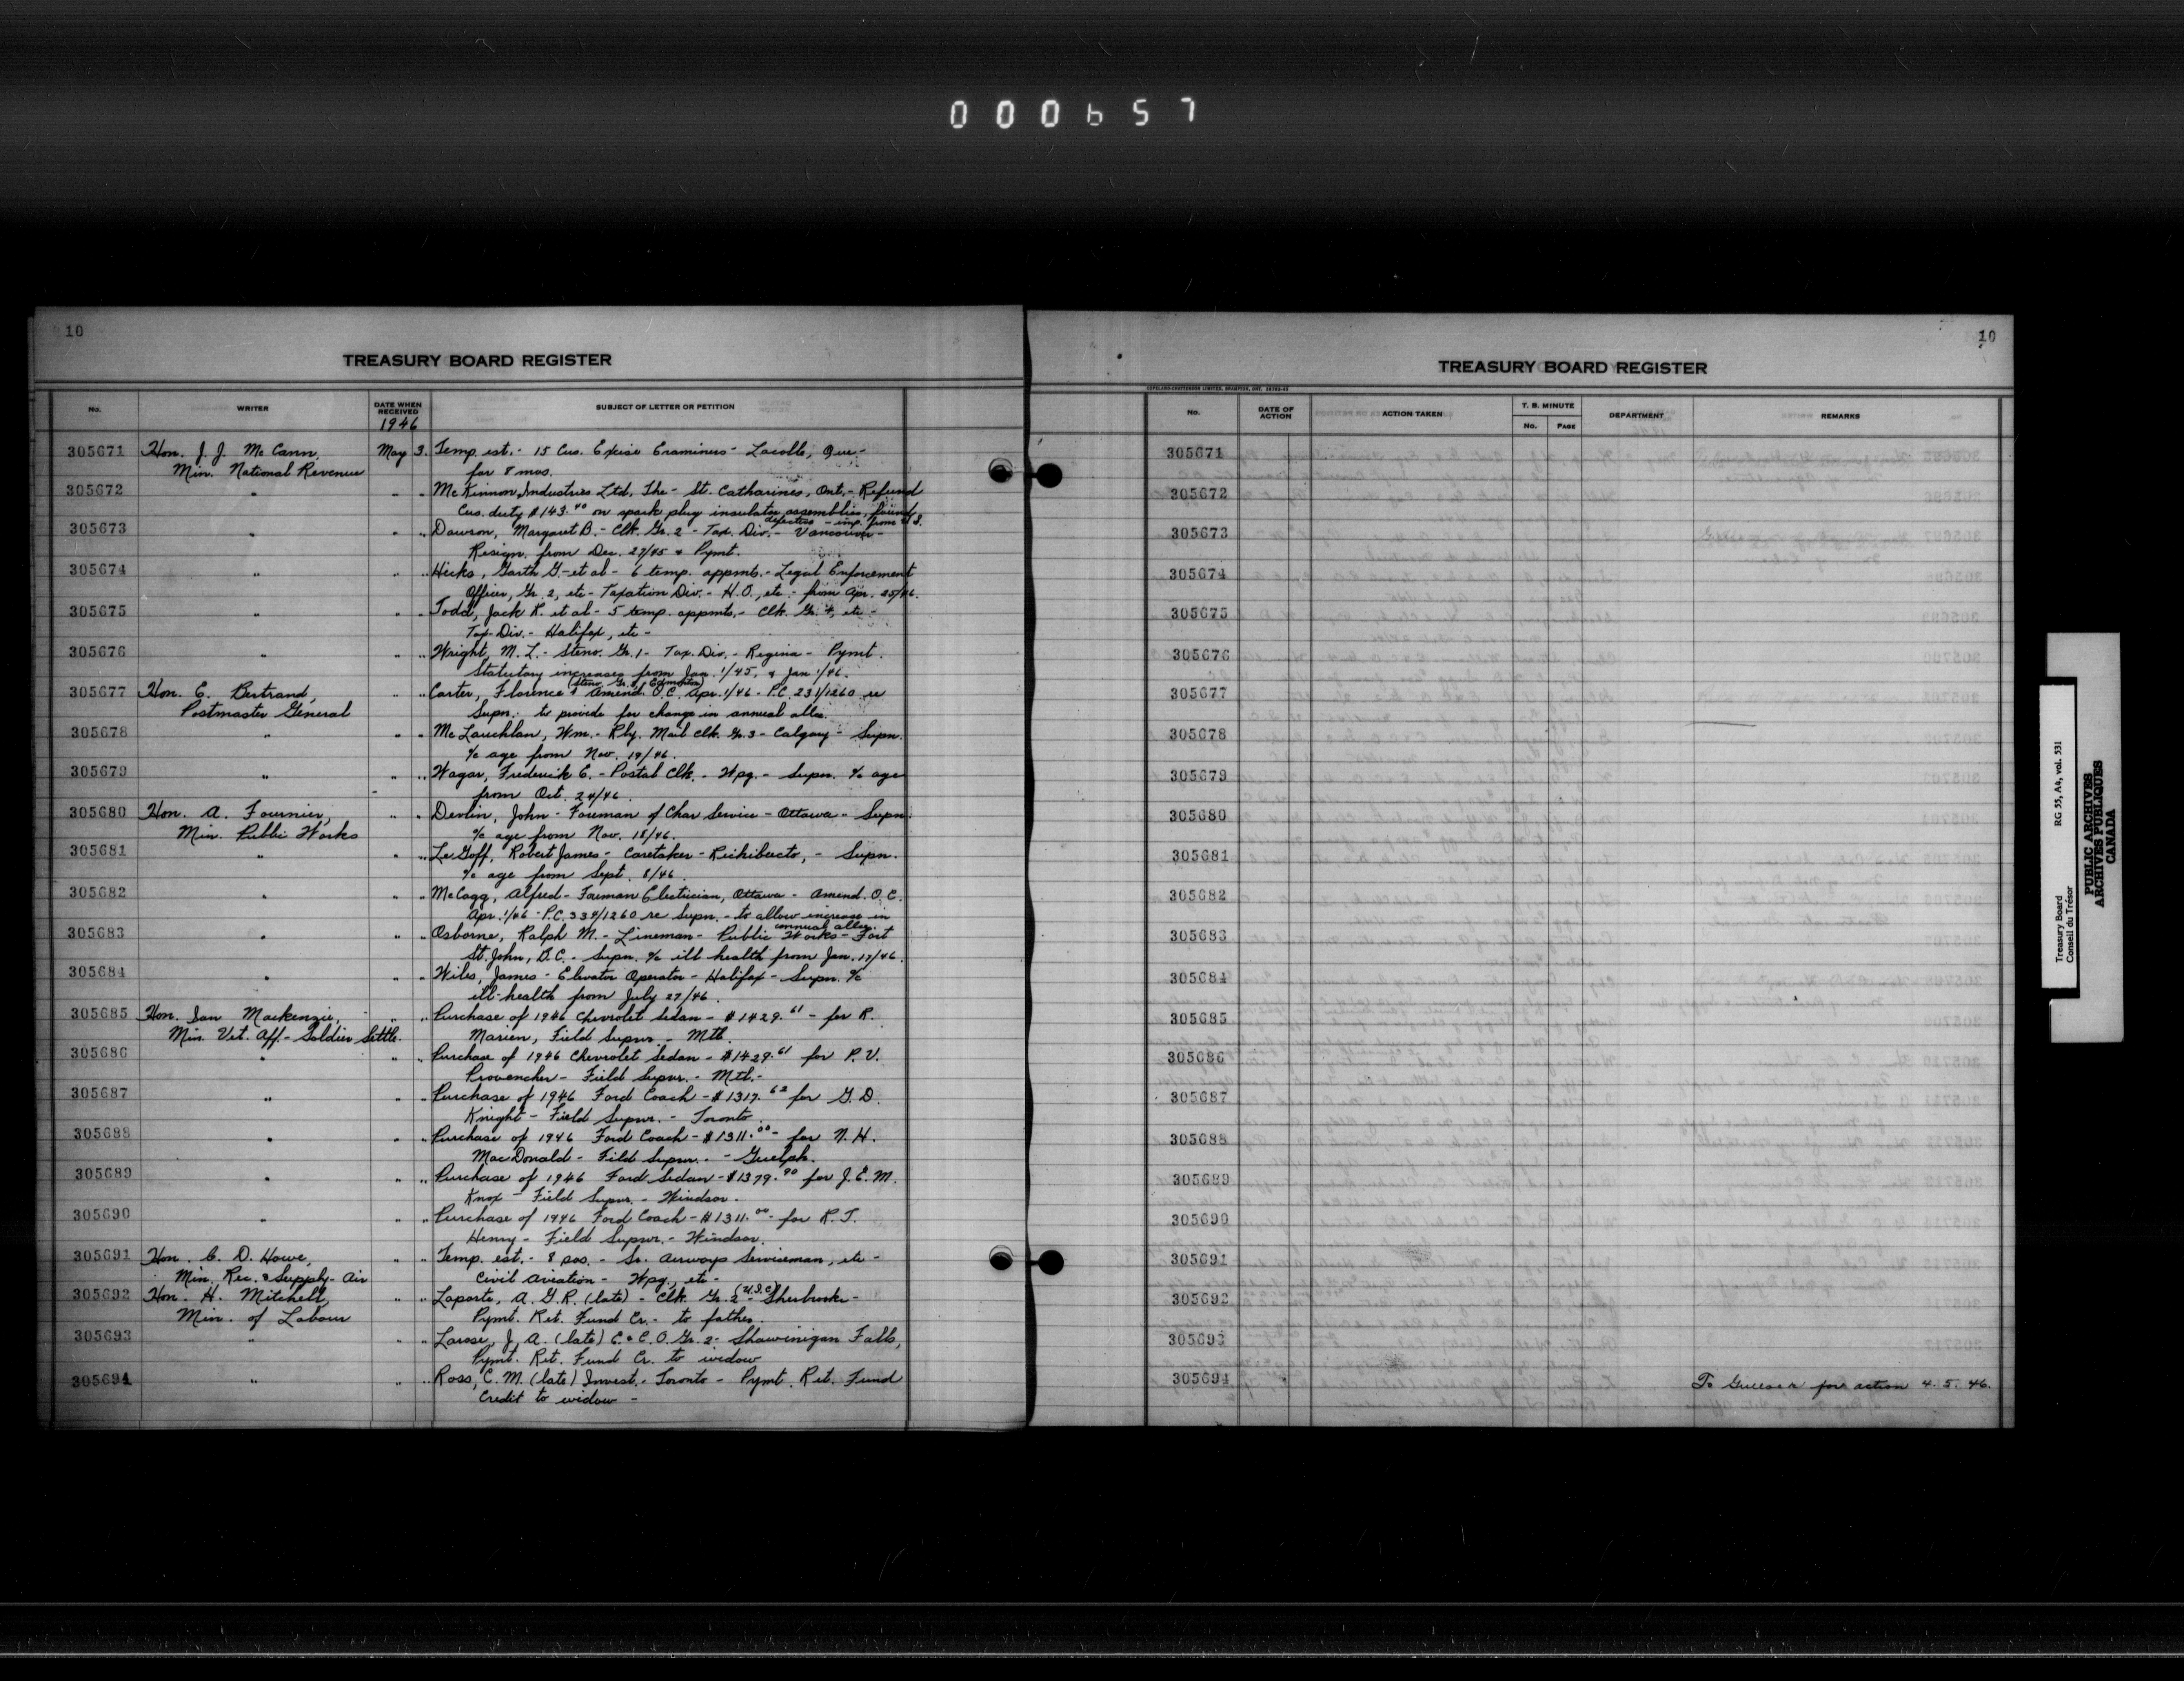 000657
10
TREASURY BOARD REGISTER
No. WRITER DATE WHEN RECEIVED SUBJECT OF LETTER OR PETITION
1946
305671 Hon. J. J. McCann, May 3. Temp. est. - 15 Cus. Excise Examiners - Lacolle, Que -
Min. National Revenue for 8 mos.
305672 " " " McKinnon Industries Ltd, The - St. Catharines, Ont. - Refund
Cus. duty $143.40 on spark plug insulator assemblies, found
defective - imp. from U.S.
305673 " " " Dawson, Margaret B. - Clk. Gr. 2 - Tax. Div. - Vancouver -
Resign. from Dec. 27/45 & Pymt.
305674 " " " Hicks, Garth G. - et al - 6 temp. appmts. - Legal Enforcement
Officer, Gr. 2, etc - Taxation Div. - H.O., etc. - from Apr. 25/46.
305675 " " " Todd, Jack K. et al - 5 temp. appmts. - Clk. Gr. 4, etc -
Tax-Div. - Halifax, etc -
305676 " " " Wright, M. L. - Steno. Gr. 1 - Tax. Div. - Regina - Pymt.
Statutory increases from Jan. 1/45, & Jan 1/46.
(Steno. Gr. 2, Edmonton)
305677 Hon. E. Bertrand, " " Carter, Florence - Amend. O.C. Apr. 1/46 - P.C. 231/1260 re
Postmaster General Supn. to provide for change in annual allce.
305678 " " " McLauchlan, Wm. - Rly. Mail Clk. Gr. 3 - Calgary - Supn.
a/c age from Nov. 19/46.
305679 " " " Wagar, Frederick E. - Postal Clk. - Wpg. - Supn. a/c age
from Oct. 24/46.
305680 Hon. A. Fournier, " " Devlin, John - Foreman of Char Service - Ottawa - Supn.
Min. Public Works a/c age from Nov. 18/46.
305681 " " " LeGoff, Robert James - Caretaker - Richibucto, - Supn.
a/c age from Sept. 8/46.
305682 " " " McCagg, Alfred - Foreman Electrician, Ottawa - Amend. O.C.
Apr. 1/46 - P.C. 334/1260 re Supn. - to allow increase in
annual allce.
305683 " " " Osborne, Ralph M. - Lineman - Public Works - Fort
St. John, B.C. - Supn. a/c ill health from Jan. 17/46.
305684 " " " Wiles, James - Elevator Operator - Halifax - Supn. a/c
ill-health from July 27/46.
305685 Hon. Ian Mackenzie, " " Purchase of 1946 Chevrolet Sedan - $1429.61 - for R.
Min. Vet. Aff. - Soldier Settle. Marien, Field Supvr. - Mtl.
305686 " " " Purchase of 1946 Chevrolet Sedan - $1429.61 for P. V.
Provencher - Field Supvr. - Mtl. -
305687 " " " Purchase of 1946 Ford Coach - $1317.62 for G. D.
Knight - Field Supvr. - Toronto.
305688 " " " Purchase of 1946 Ford Coach - $1311.00 - for N. H.
MacDonald - Fild Supvr. - Guelph.
305689 " " " Purchase of 1946 Ford Sedan - $1379.90 for J. E. M.
Knox - Field Supvr. - Windsor.
305690 " " " Purchase of 1946 Ford Coach - $1311.00 - for R. J.
Henry - Field Supvr. - Windsor.
305691 Hon. C. D. Howe, " " Temp. est. - 8 pos. - Sr. Airways Serviceman, etc -
Min. Rec. & Supply - Air Civil Aviation - Wpg., etc -
305692 Hon. H. Mitchell, " " Laporte, A. G. R. (late) - Clk. Gr. 2 (U.I.C.) - Sherbrooke -
Min. of Labour Pymt. Ret. Fund Cr. - to father.
305693 " " " Larose, J. A. (late) C. & C. O. Gr. 2 - Shawinigan Falls,
Pymt. Ret. Fund Cr. to widow
305694 " " " Ross, C. M. (late) Invest. - Toronto - Pymt. Ret. Fund
Credit to widow -
10
TREASURY BOARD REGISTER
COPELAND-CHATTERSON LIMITED, BRAMPTON, ONT.
No. DATE OF ACTION ACTION TAKEN T. B. MINUTE DEPARTMENT REMARKS
No. PAGE
305671
305672
305673
305674
305675
305676
305677
305678
305679
305680
305681
305682
305683
305684
305685
305686
305687
305688
305689
305690
305691
305692
305693
305694 To for action 4. 5. 46.
Treasury Board RG 55, A4, vol. 531
Conseil du Trésor
PUBLIC ARCHIVES
ARCHIVES PUBLIQUES
CANADA